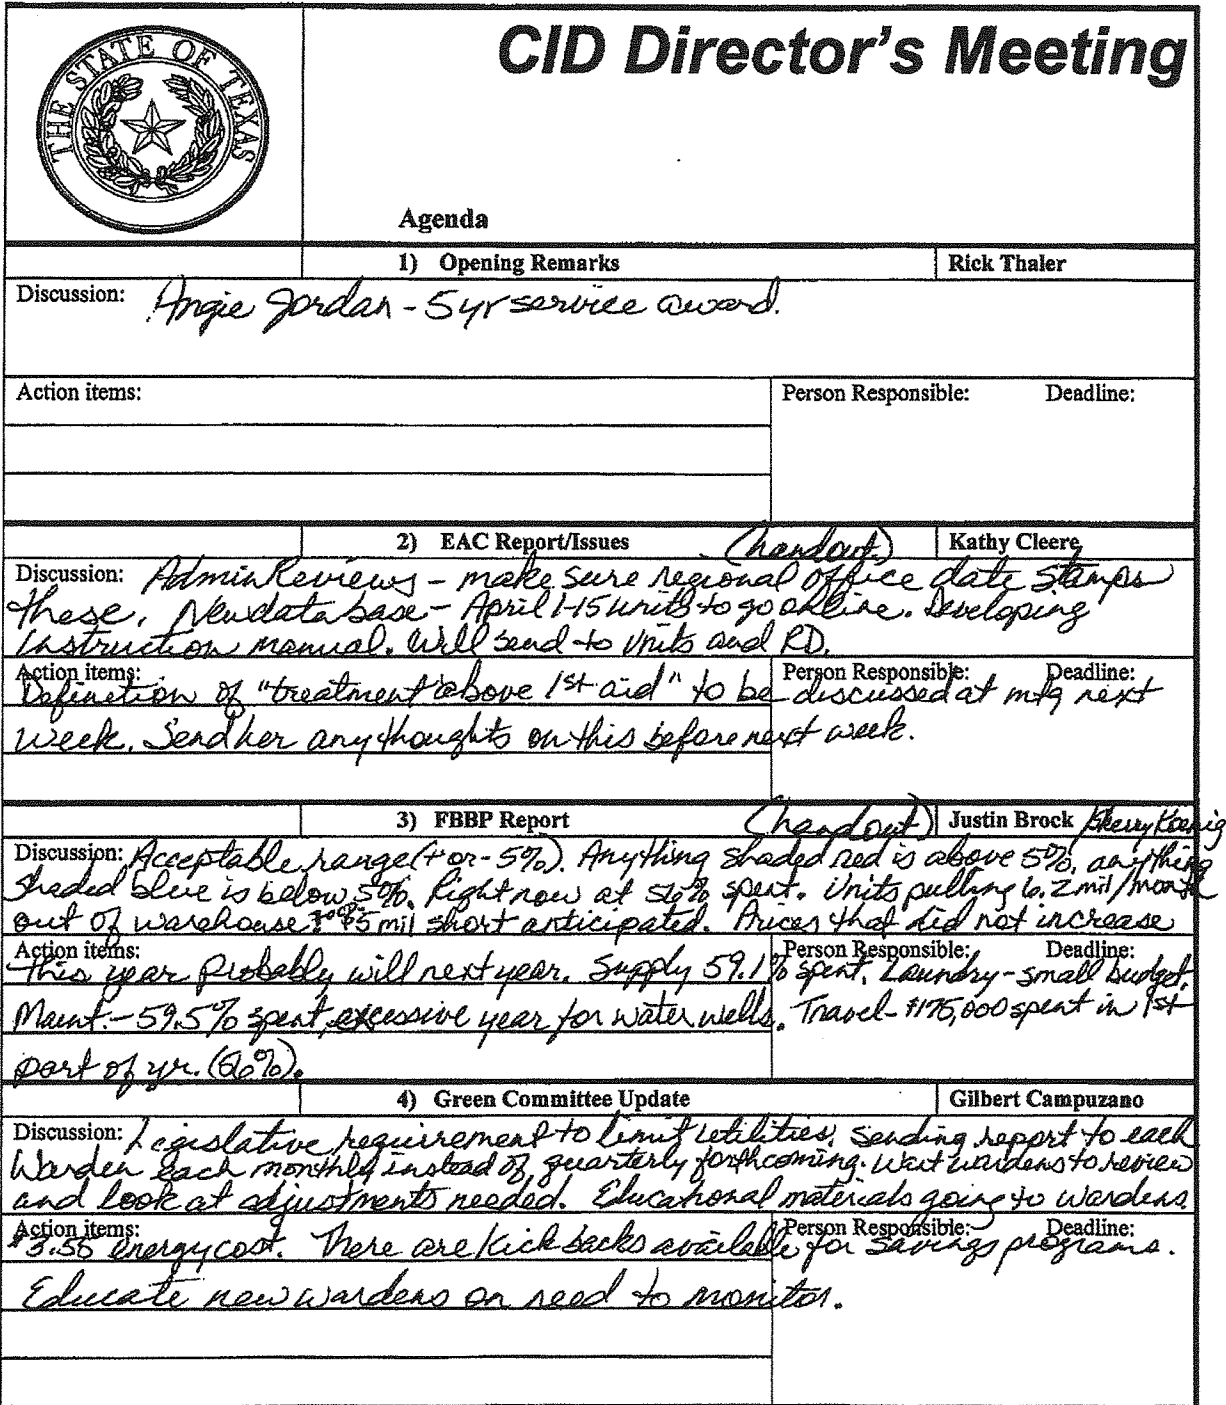 THE STATE OF TEXAS
CID Director's Meeting
Agenda
1) Opening Remarks Rick Thaler
Discussion: Angie Jordan - 5 yr service award.
Action items: Person Responsible: Deadline:
2) EAC Report/Issues (handout) Kathy Cleere
Discussion: Admin Reviews - make sure regional office date stamps
these. New data base - April 1-15 units to go online. Developing
instruction manual. Will send to units and RD.
Action items: Person Responsible: Deadline:
Definetion of "treatment above 1st aid" to be discussed at mtg next
week. Send her any thoughts on this before next week.
3) FBBP Report (handout) Justin Brock / Sherry Koenig
Discussion: Acceptable range (+ or - 5%). Anything shaded red is above 5%, anything
shaded blue is below 5%. Right now at 56% spent. Units pulling 6.2 mil/month
out of warehouse. 5 mil short anticipated. Prices that did not increase
Action items: Person Responsible: Deadline:
this year probably will next year. Supply 59.1% spent. Laundry - small budget.
Maint. - 59.5% spent, excessive year for water wells. Travel - $175,000 spent in 1st
part of yr. (56%).
4) Green Committee Update Gilbert Campuzano
Discussion: Legislative requirement to limit utilities. Sending report to each
Warden each monthly instead of quarterly forthcoming. Want wardens to review
and look at adjustments needed. Educational materials going to wardens.
Action items: Person Responsible: Deadline:
energy cost. There are kick backs available for savings programs.
Educate new wardens on need to monitor.